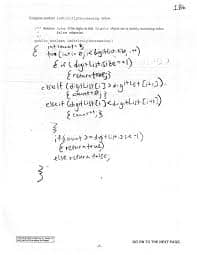 1Bb
Complete method isStrictlyIncreasing below.
/** Returns true if the digits in this Digits object are in strictly increasing order;
false otherwise.
*/
public boolean isStrictlyIncreasing()
{ int count = 0;
{ if (digitList.size == 1)
{ return true; }
else if (digitList[i] > digitList[i+1])
{ count+0; }
else if (digitList[i] < digitList[i+1])
{ count+1; }
}
if (count == digitList.size-1)
{ return true; }
else return false;
}
GO ON TO THE NEXT PAGE.